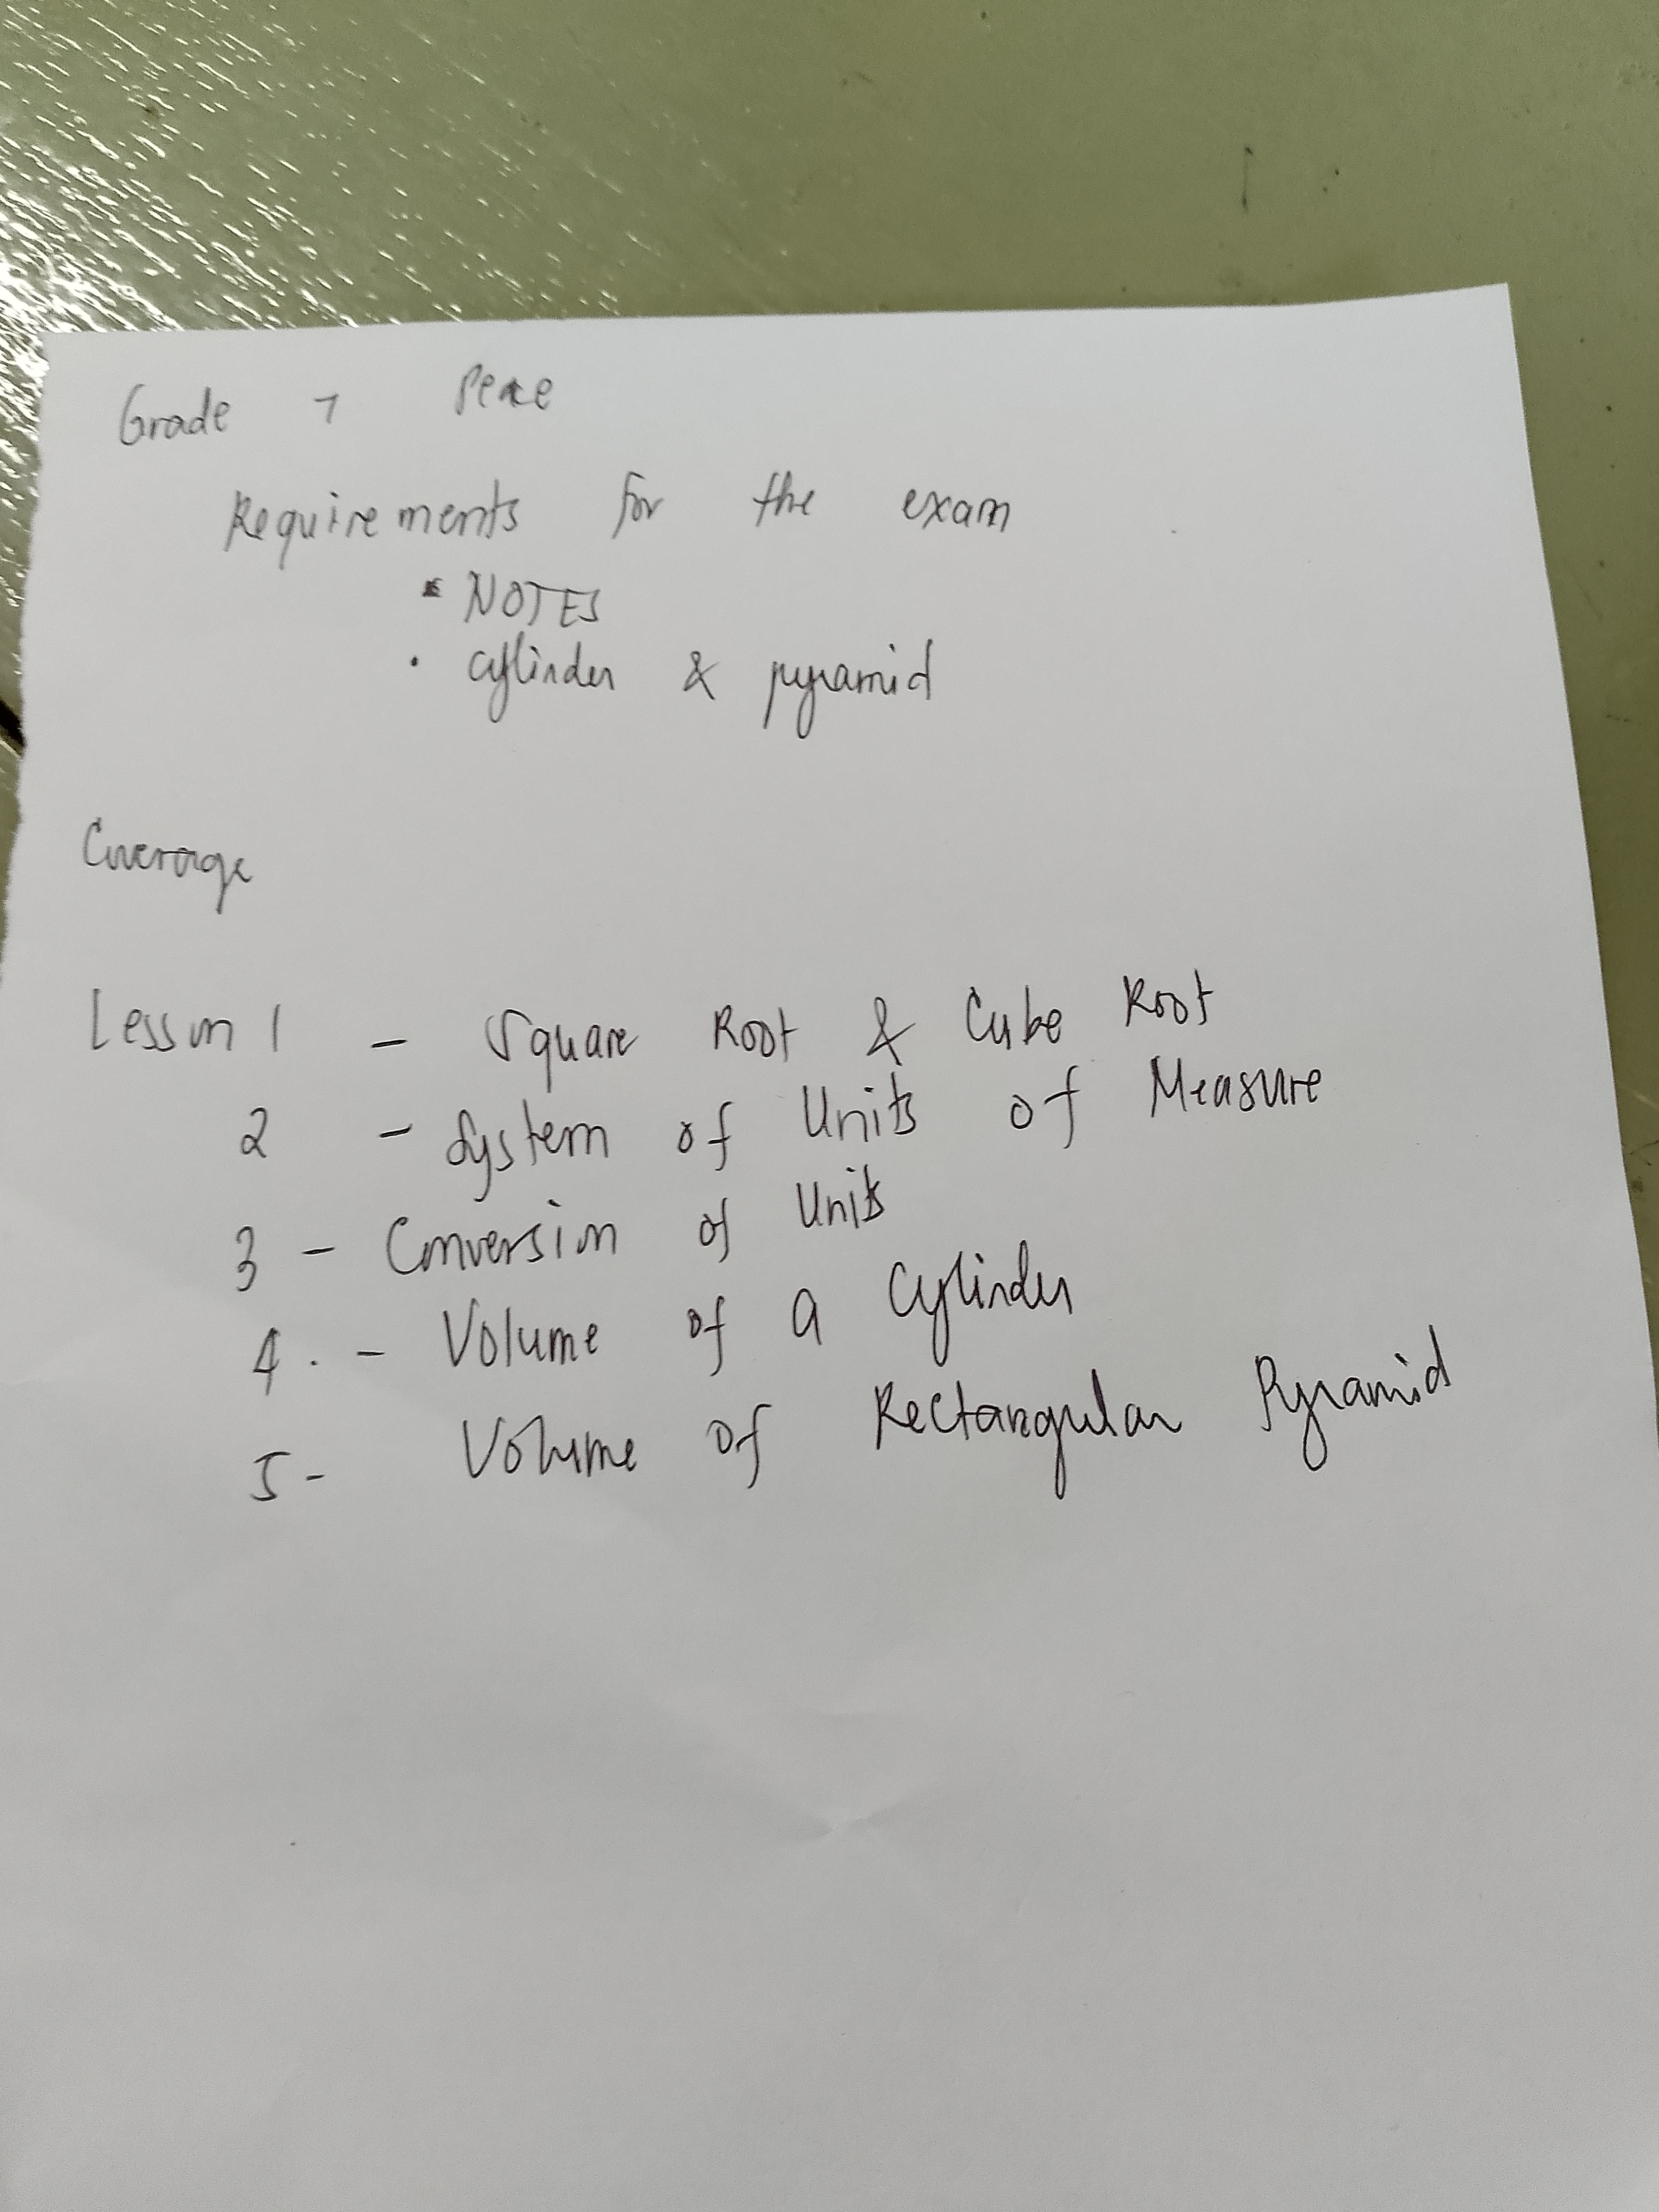 Grade 7 Peace
Requirements for the exam
• NOTES
• cylinder & pyramid
Coverage
Lesson 1 - Square Root & Cube Root
2 - System of Units of Measure
3 - Conversion of Units
4. - Volume of a Cylinder
5 - Volume of Rectangular Pyramid